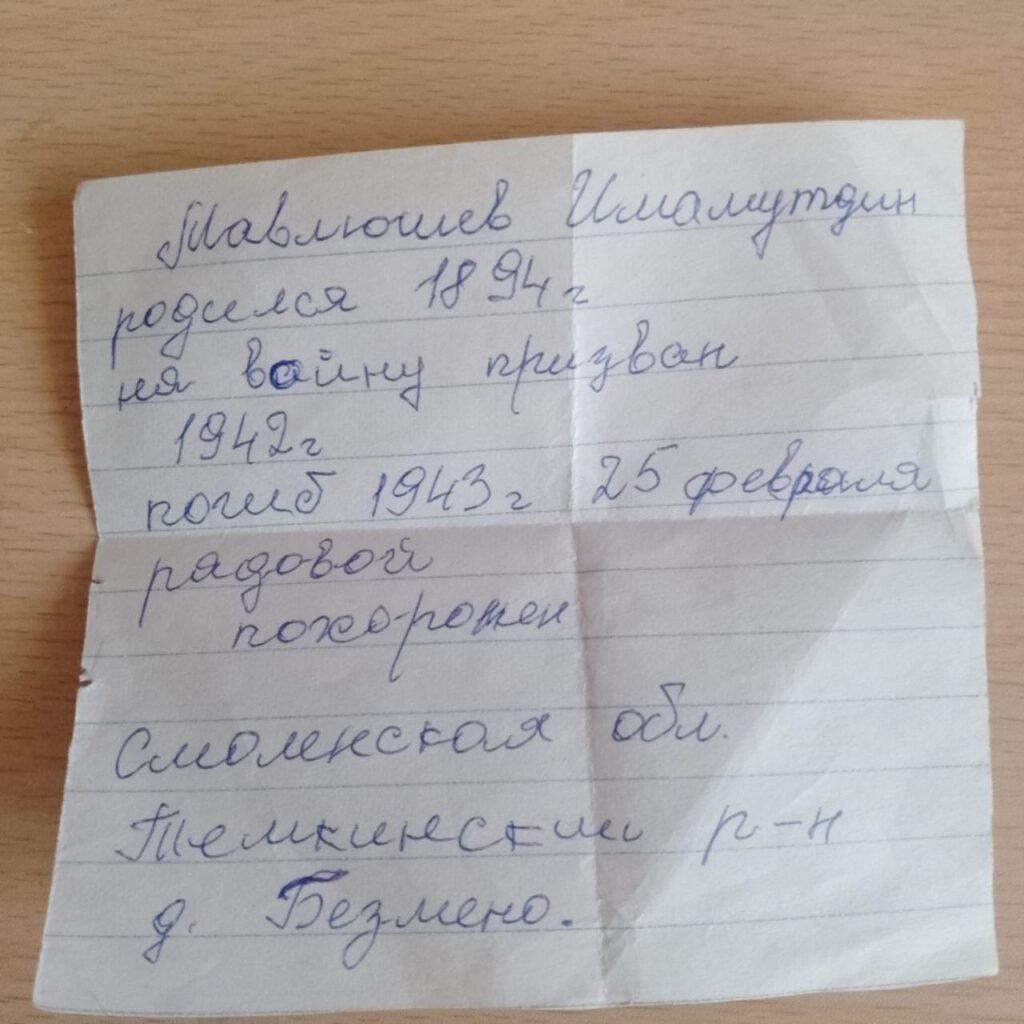 Тавлюшев Имамутдин
родился 1894г
на войну призван
1942г
погиб 1943г 25 февраля
рядовой
похоронен
Смоленская обл.
Темкинский р-н
д. Безмено.